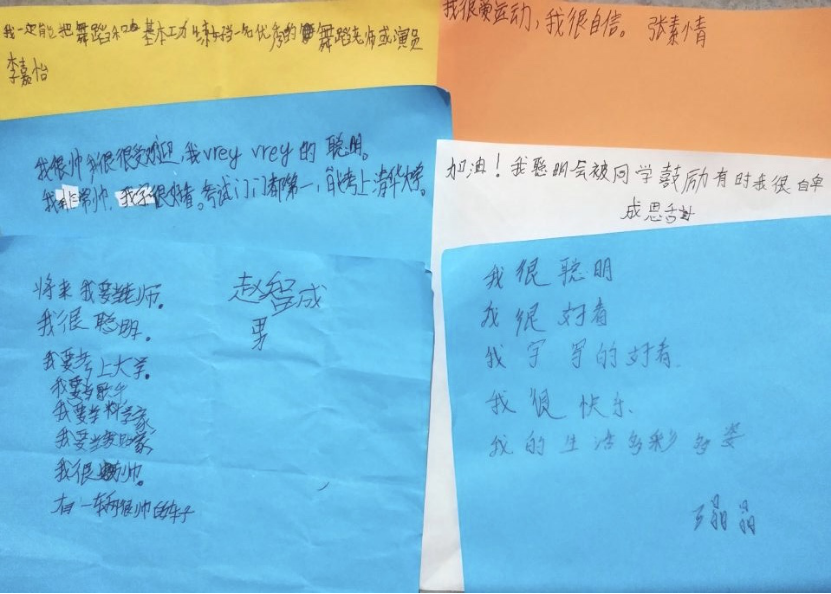 我一定能把舞蹈和基本功练好当一名优秀的舞蹈老师或演员
李嘉怡
我很爱运动,我很自信。 张素情
我很帅我很很受欢迎,我vrey vrey的 聪明。
我非常帅,我字很好看。考试门门都第一,能考上清华大学。
加油!我聪明会被同学鼓励有时我很自卑
成思
将来我要当老师。
我很聪明。
我要考上大学。
我要当歌手
我要当科学家
我要当
我很帅。
有一车辆很帅的车子
赵智成
男
我很聪明
我很好看
我字写的好看
我很快乐
我的生活多彩多姿
晶晶